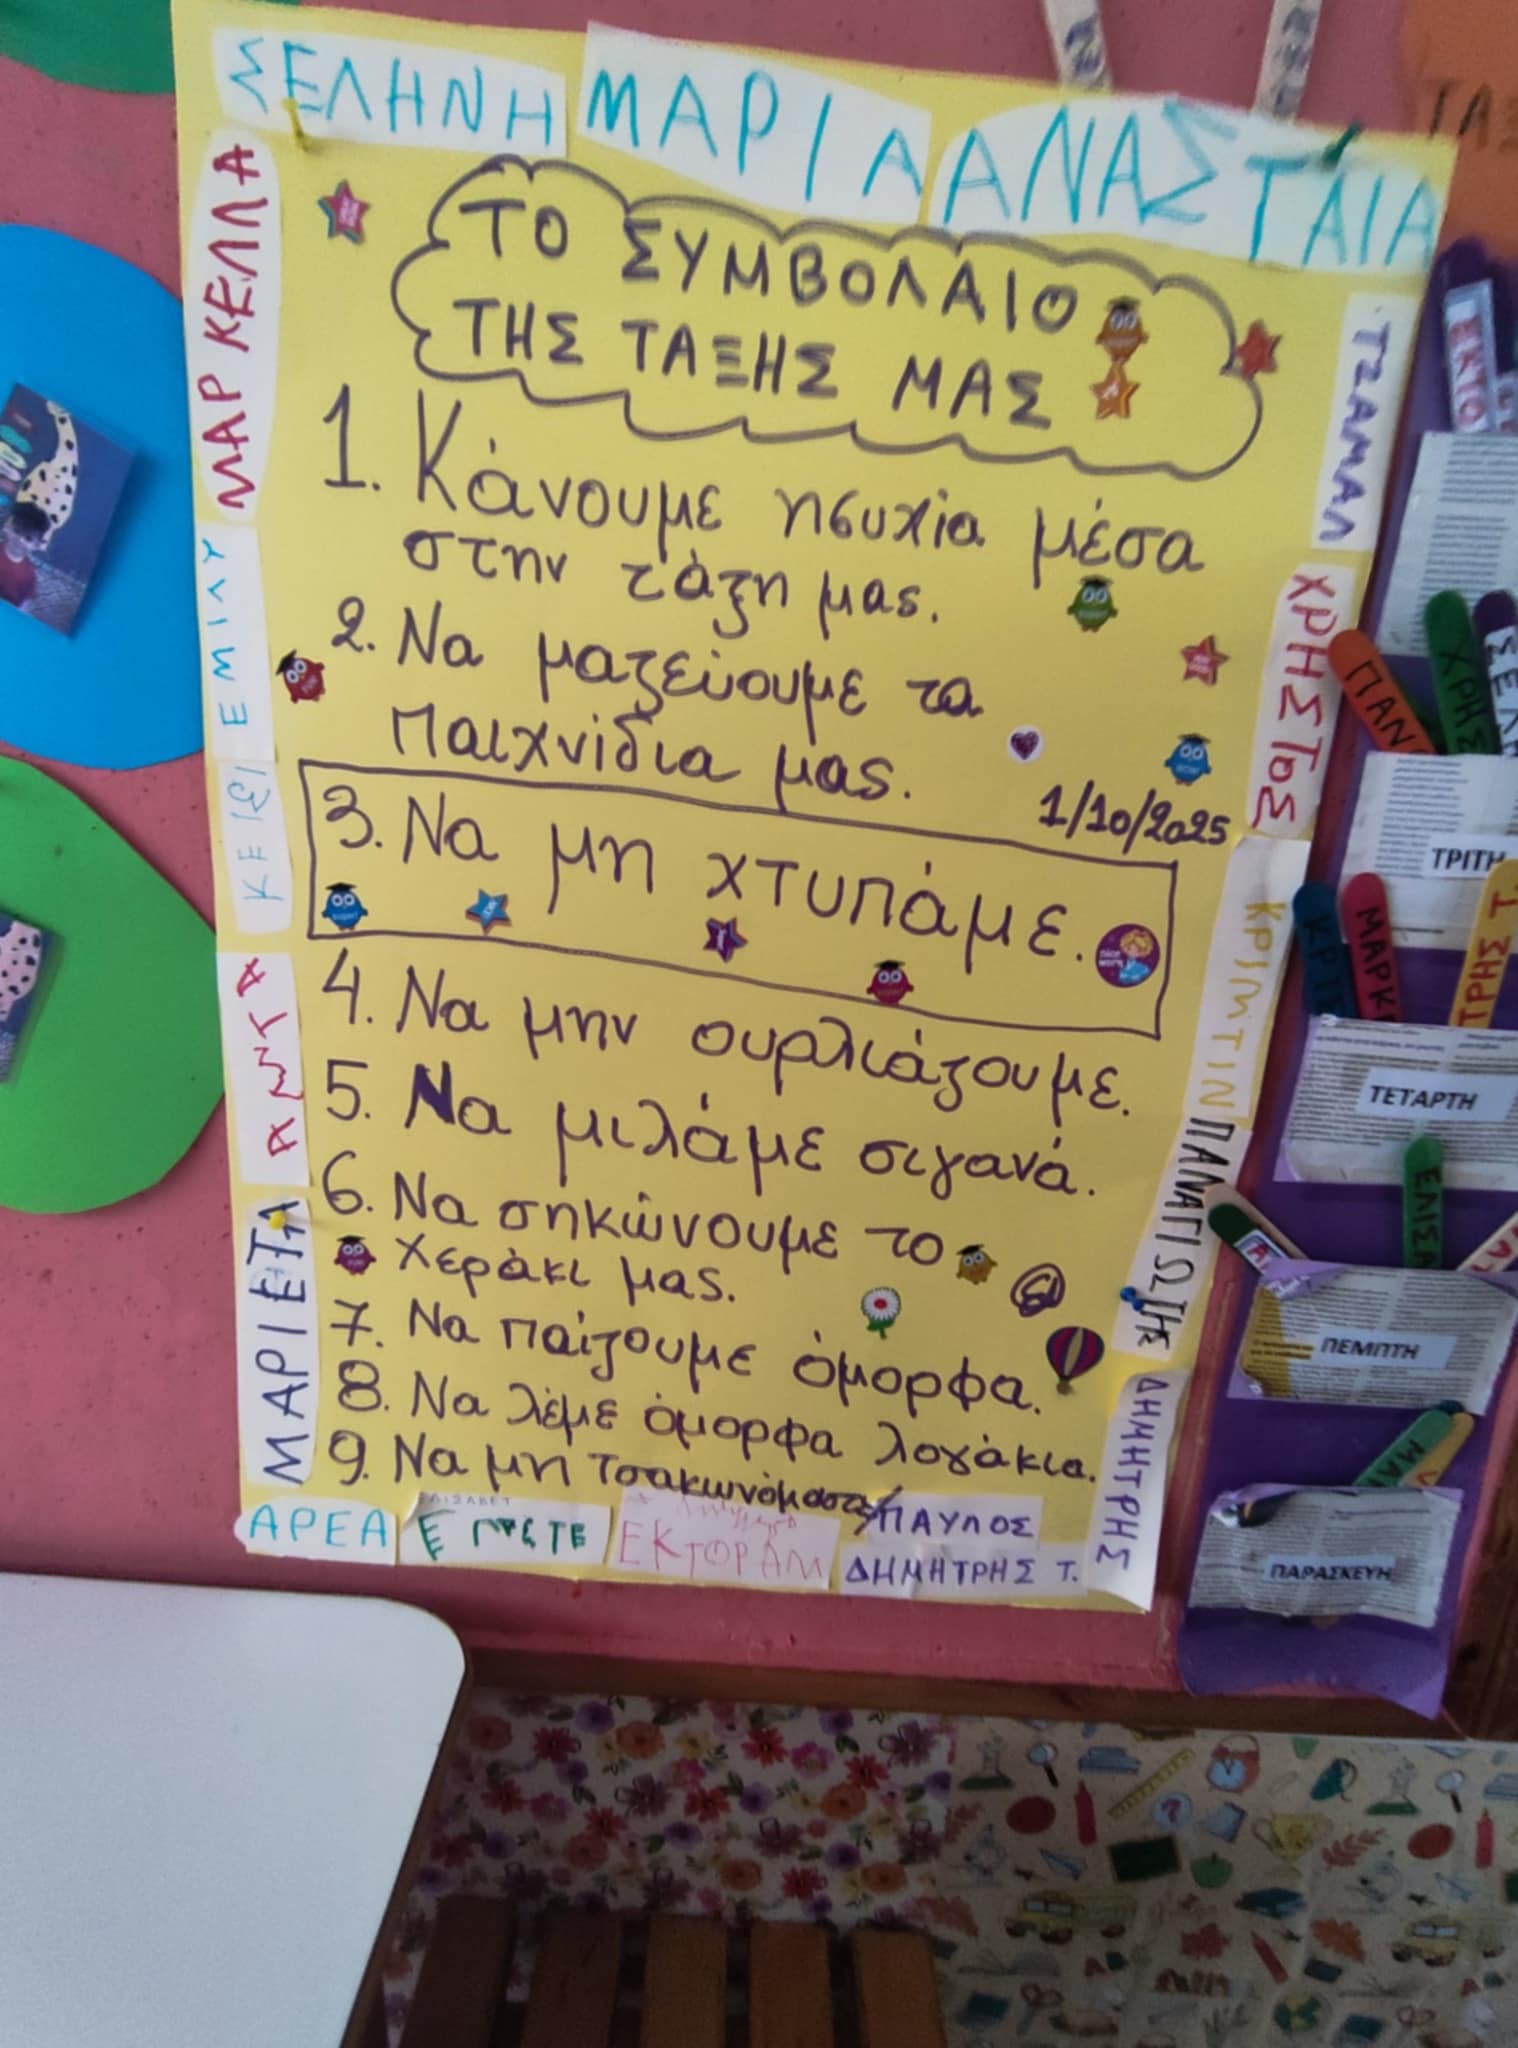 ΣΕΛΗΝΗ ΜΑΡΙΑ ΑΝΑΣΤΑΙΑ
ΤΟ ΣΥΜΒΟΛΑΙΟ
ΤΗΣ ΤΑΞΗΣ ΜΑΣ
1. Κάνουμε ησυχία μέσα
στην τάξη μας.
2. Να μαζεύουμε τα
παιχνίδια μας.
1/10/2025
3. Να μη χτυπάμε.
4. Να μην ουρλιάζουμε.
5. Να μιλάμε σιγανά.
6. Να σηκώνουμε το
χεράκι μας.
7. Να παίζουμε όμορφα.
8. Να λέμε όμορφα λογάκια.
9. Να μη τσακωνόμαστε
ΜΑΡΚΕΛΛΑ
ΕΜΙΛΥ
ΚΕΙΣΙ
ΑΣΤΑ
ΜΑΡΙΕΤΑ
ΑΡΕΑ
ΕΛΙΣΑΒΕΤ
ΕΚΤΟΡΑΜ
ΠΑΥΛΟΣ
ΔΗΜΗΤΡΗΣ Τ.
ΤΖΑΜΑΛ
ΧΡΗΣΤΟΣ
ΚΡΙΣΤΙΝ
ΠΑΝΑΓΙΩΤΗΣ
ΔΗΜΗΤΡΗΣ
ΠΑΝ
ΧΡΗΣ
ΣΕΛΗ
ΤΡΙΤΗ
ΜΑΡΚ
ΤΡΗΣ Τ
ΤΕΤΑΡΤΗ
ΕΛΙΣΑ
ΠΕΜΠΤΗ
ΠΑΡΑΣΚΕΥΗ